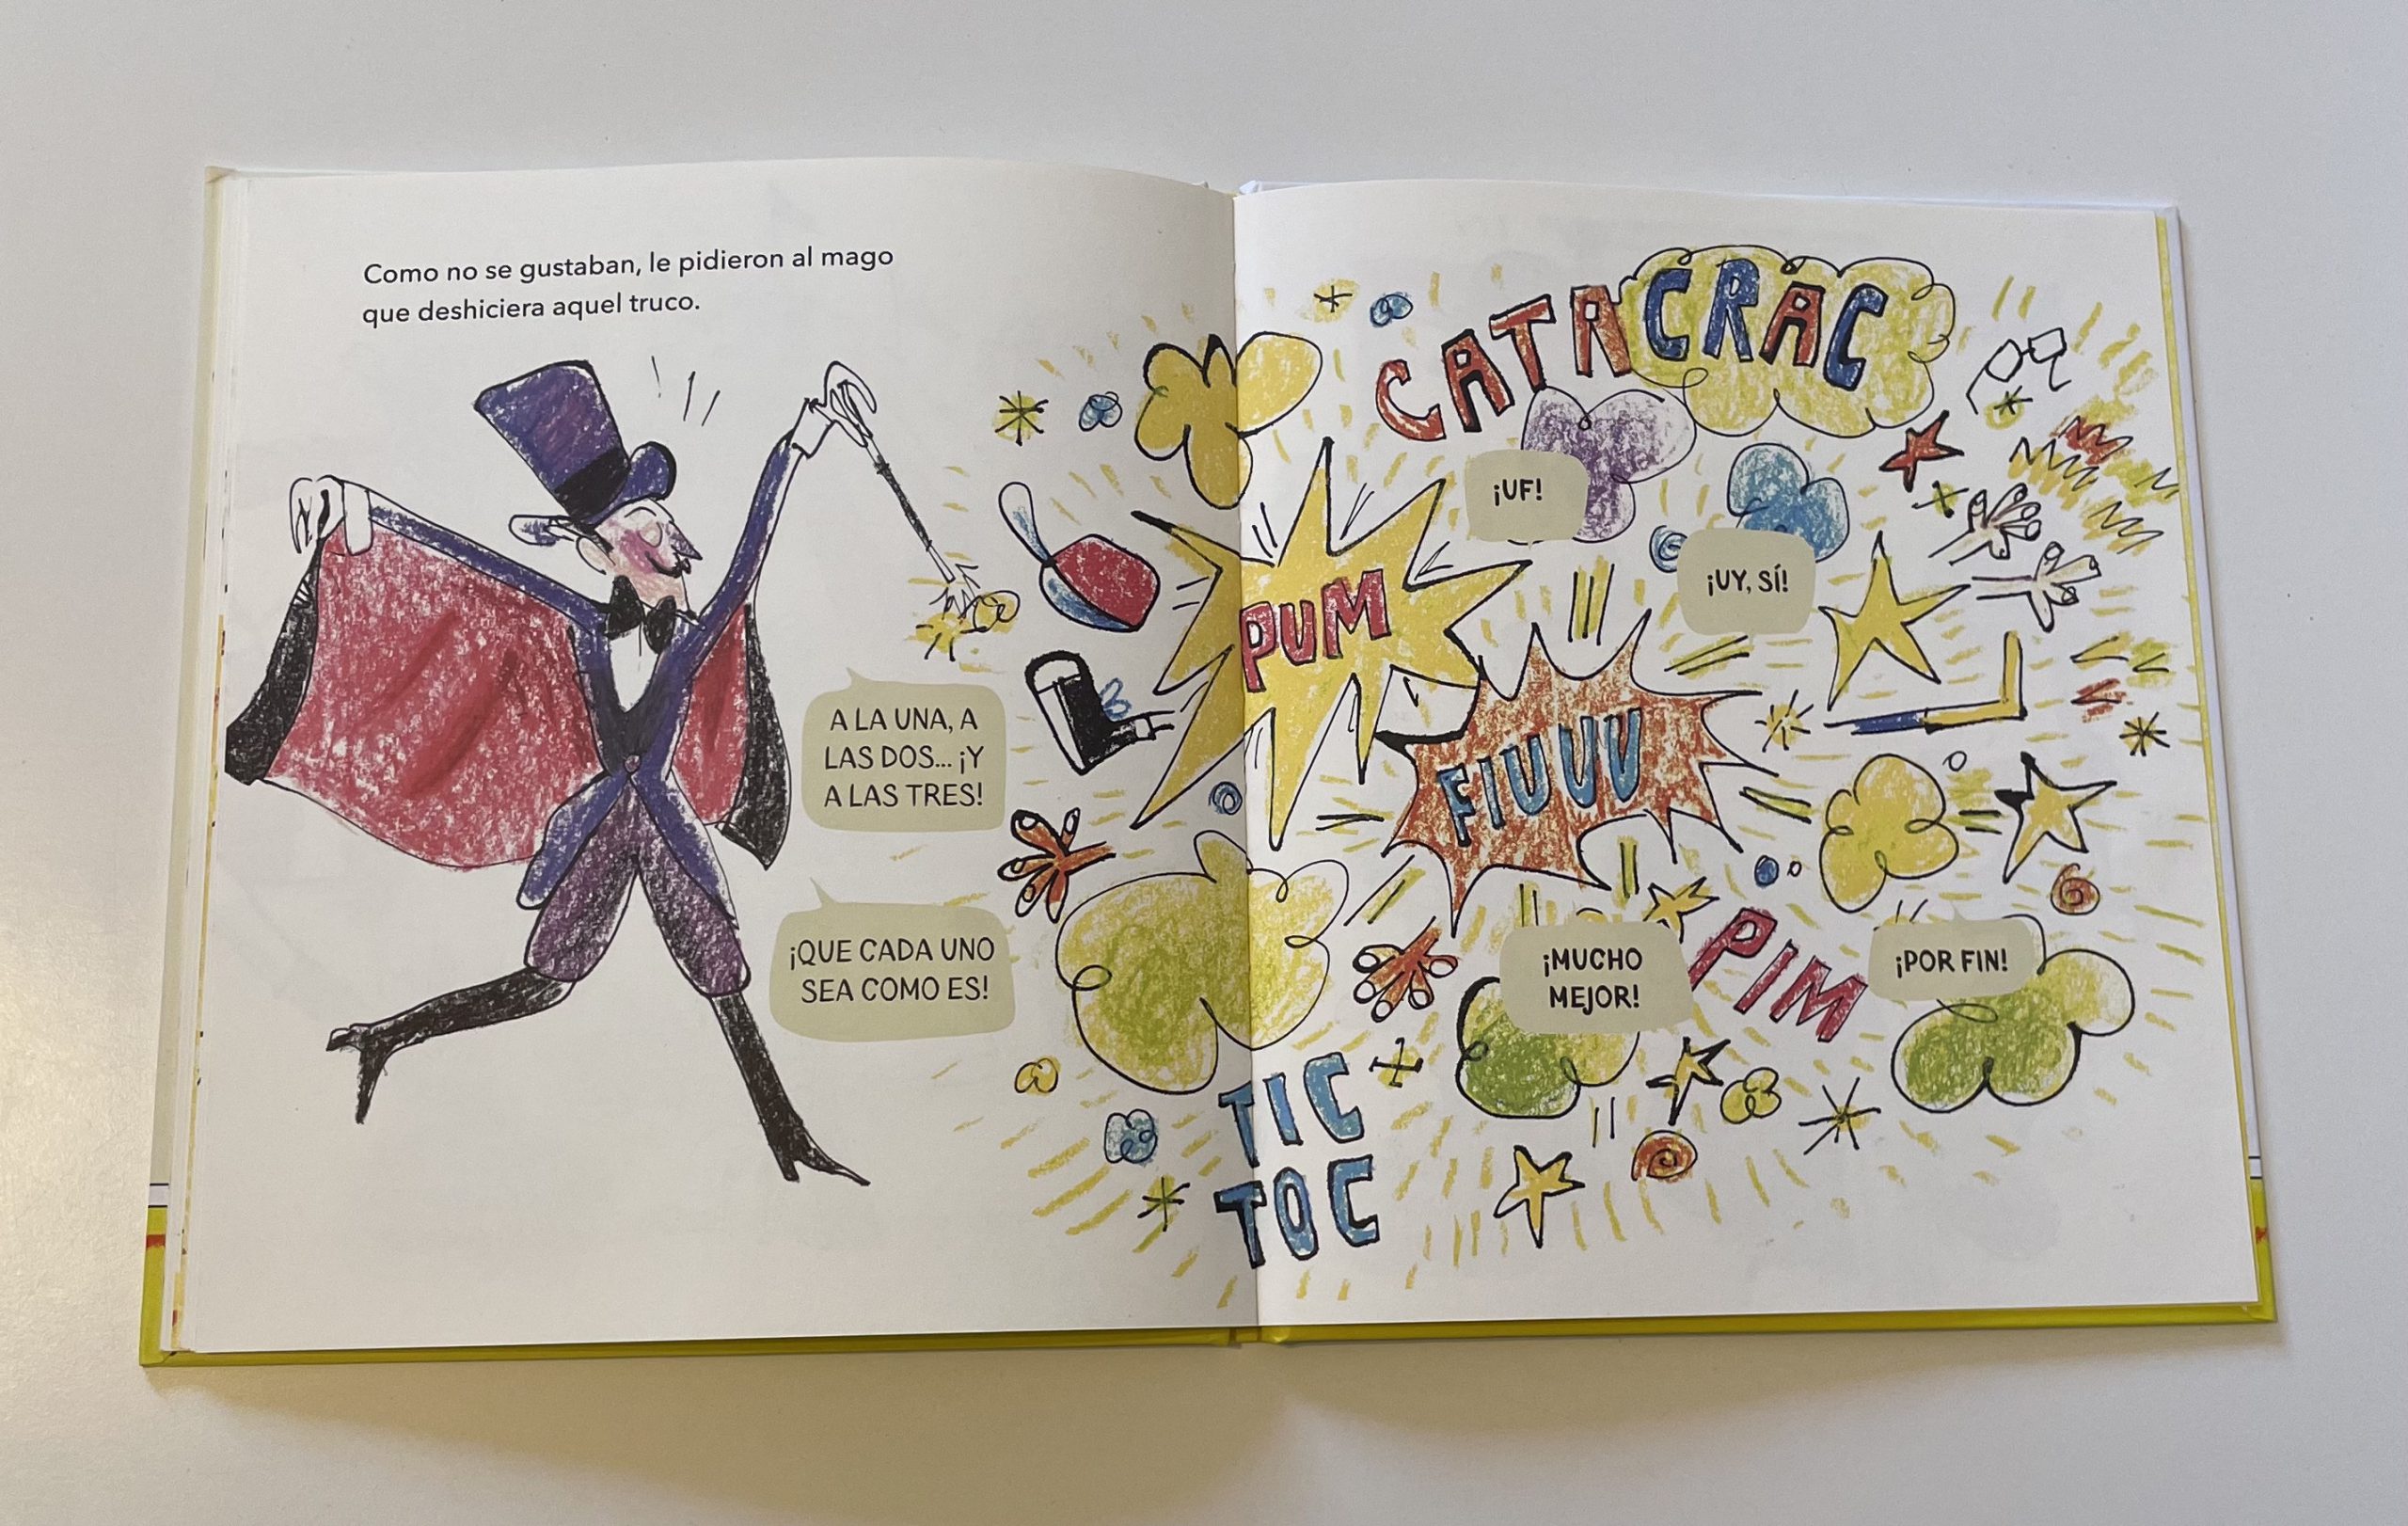 Como no se gustaban, le pidieron al mago
que deshiciera aquel truco.
A LA UNA, A
LAS DOS... ¡Y
A LAS TRES!
¡QUE CADA UNO
SEA COMO ES!
CATACRAC
¡UF!
¡UY, SÍ!
PUM
FIUUU
¡MUCHO
MEJOR!
PIM
¡POR FIN!
TIC
TOC